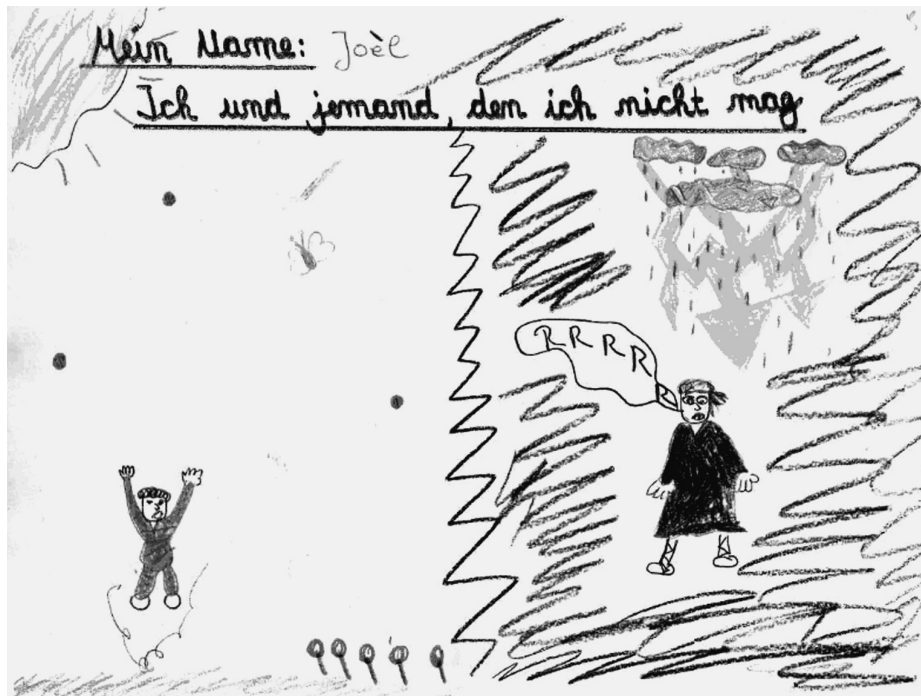 Mein Name: Joèl
Ich und jemand, den ich nicht mag
RRRRR